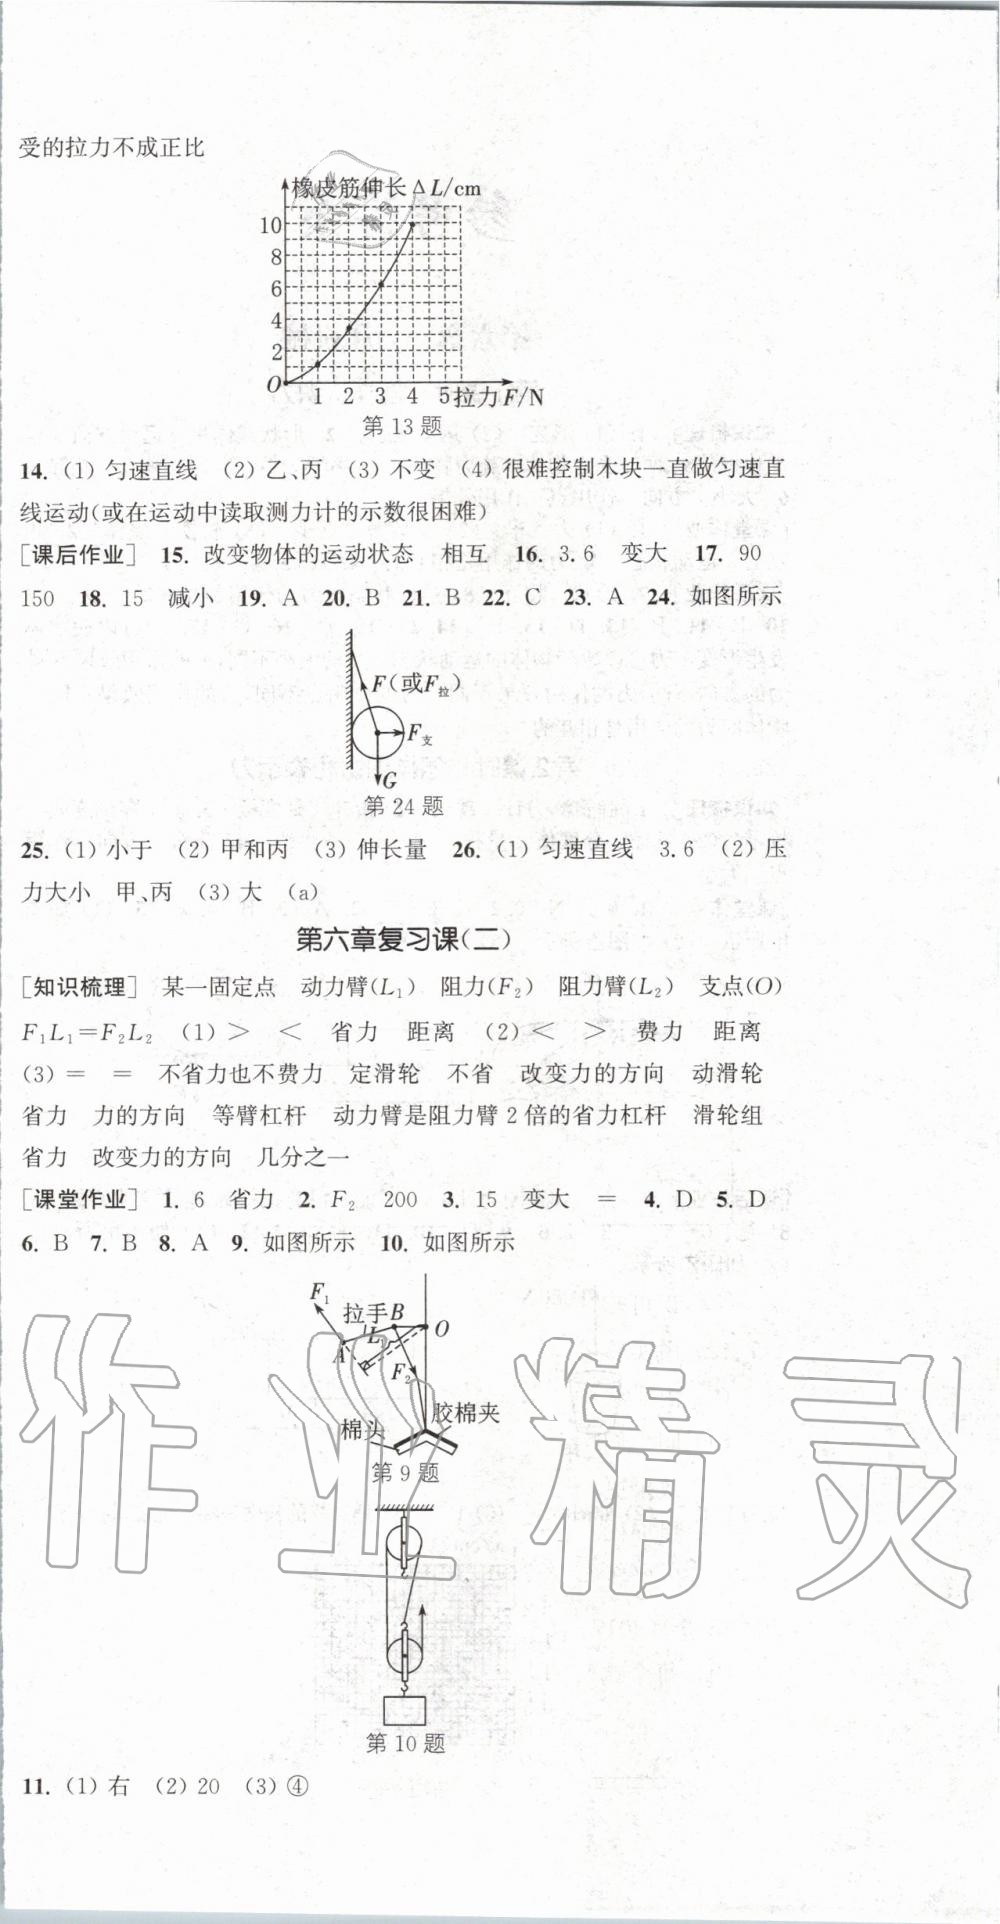 受的拉力不成正比
橡皮筋伸长ΔL/cm
10
8
6
4
2
O
1 2 3 4 5 拉力F/N
第13题
14. (1) 匀速直线 (2) 乙、丙 (3) 不变 (4) 很难控制木块一直做匀速直
线运动(或在运动中读取测力计的示数很困难)
[课后作业] 15. 改变物体的运动状态 相互 16. 3.6 变大 17. 90
150 18. 15 减小 19. A 20. B 21. B 22. C 23. A 24. 如图所示
F(或F拉)
F支
G
第24题
25. (1) 小于 (2) 甲和丙 (3) 伸长量 26. (1) 匀速直线 3.6 (2) 压
力大小 甲、丙 (3) 大 (a)
第六章复习课(二)
[知识梳理] 某一固定点 动力臂(L₁) 阻力(F₂) 阻力臂(L₂) 支点(O)
F₁L₁=F₂L₂ (1) > < 省力 距离 (2) < > 费力 距离
(3) = = 不省力也不费力 定滑轮 不省 改变力的方向 动滑轮
省力 力的方向 等臂杠杆 动力臂是阻力臂2倍的省力杠杆 滑轮组
省力 改变力的方向 几分之一
[课堂作业] 1. 6 省力 2. F₂ 200 3. 15 变大 = 4. D 5. D
6. B 7. B 8. A 9. 如图所示 10. 如图所示
F₁
拉手 B
L₁
O
A
F₂
胶棉夹
棉头
第9题
第10题
11. (1) 右 (2) 20 (3) ④
作业精灵